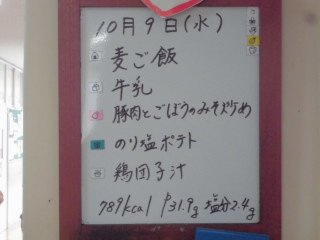 10月9日(水)
麦ご飯
牛乳
豚肉とごぼうのみそ炒め
のり塩ポテト
鶏団子汁
789kcal P31.9g 塩分2.4g